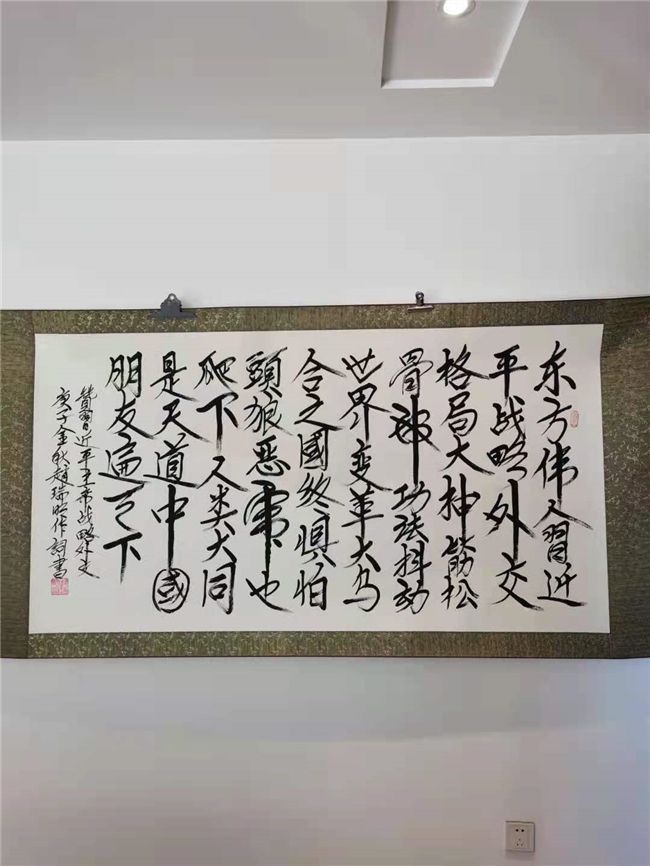 东方伟人習近
平战略外交
格局大抻筋松
骨神功法抖动
世界变革大乌
合之國终惧怕
頭狼恶霸也
爬下人类大同
是天道中國
朋友遍天下
赞習近平主席战略外交
庚子金秋趙瑞 作词書